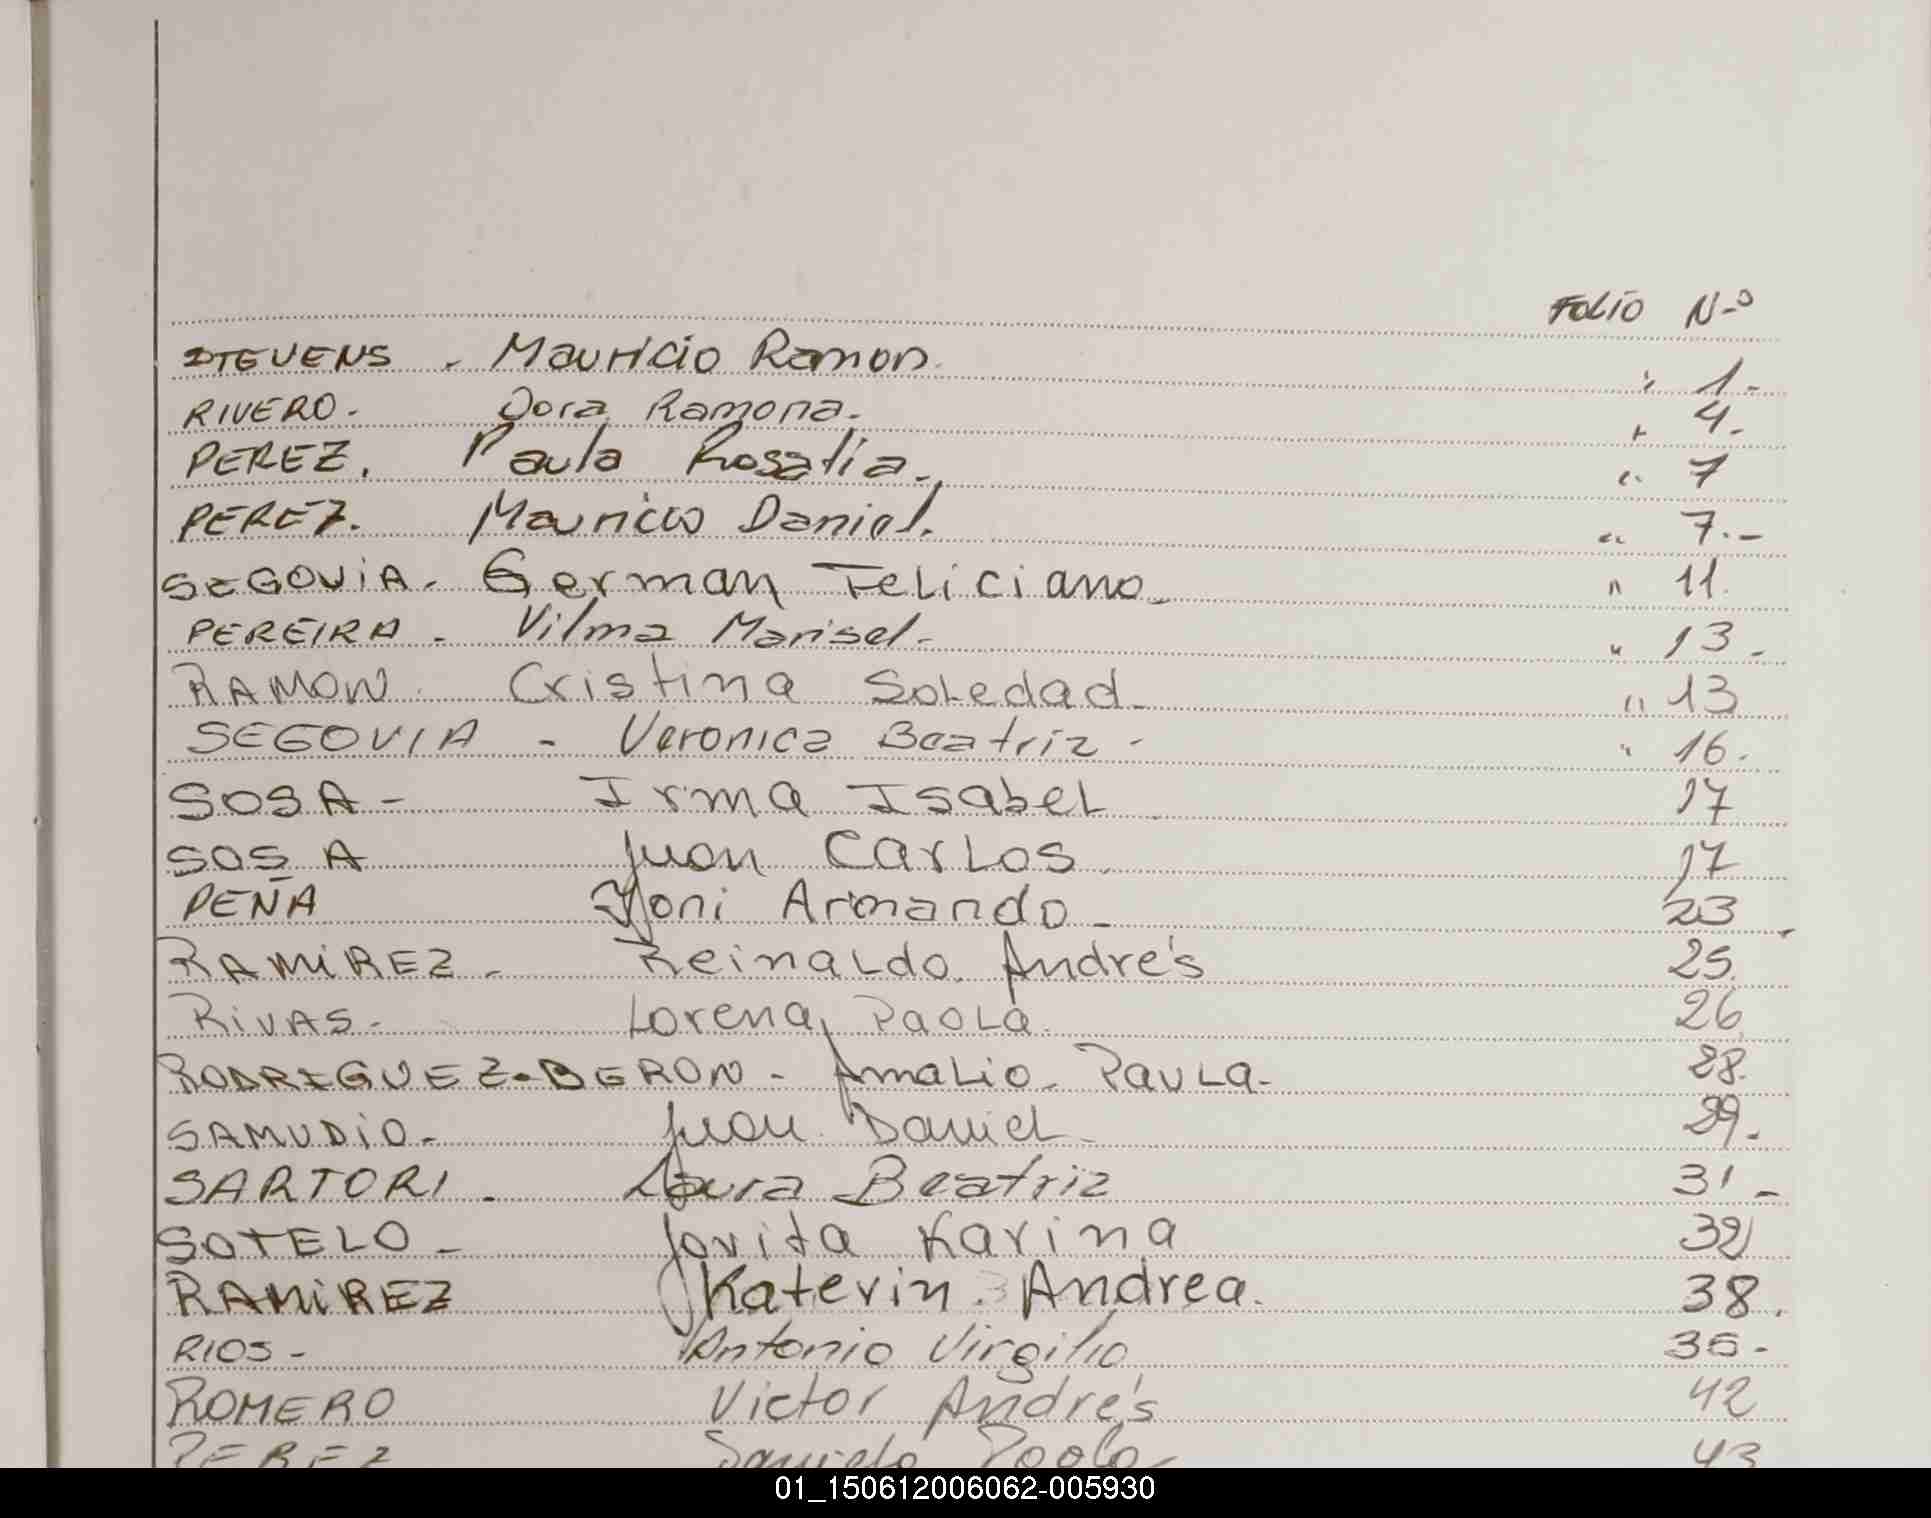 FOLIO N-º
STEVENS. Mauricio Ramon. " 1.-
RIVERO. Dora Ramona. " 4.-
PEREZ. Paula Rosalia. " 7
PEREZ. Mauricio Daniel. " 7.-
SEGOVIA. German Feliciano. " 11.
PEREIRA. Vilma Marisel. " 13.-
RAMON. Cristina Soledad. " 13
SEGOVIA - Veronica Beatriz - " 16.
SOSA - Irma Isabel 17
SOSA Juan Carlos. 17
PEÑA Yoni Armando - 23.
RAMIREZ. Reinaldo Andrés 25.
RIVAS. Lorena Paola. 26.
RODRIGUEZ-BERON - Amalio. Paula - 28.
SAMUDIO. Juan Daniel 29.
SARTORI. Laura Beatriz 31 -
SOTELO - Jovita Karina 32
RAMIREZ Katerin Andrea. 38.
RIOS - Antonio Virgilio 35 -
ROMERO Victor Andrés 42
PEREZ Paola 43
01_150612006062-005930